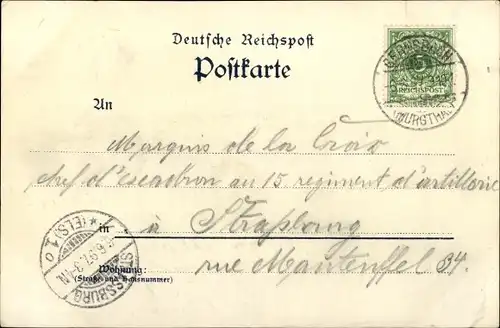 Deutsche Reichspost
Postkarte
An
GERNSBACH
REICHSPOST
(MURGTHAL)
Marquis de la Croix
chef d'escadron au 15 regiment d'artillerie
in à Straßburg
Wohnung: rue Manteuffel 34.
(Straße und Hausnummer)
STRASSBURG
* (ELS.) 1. o